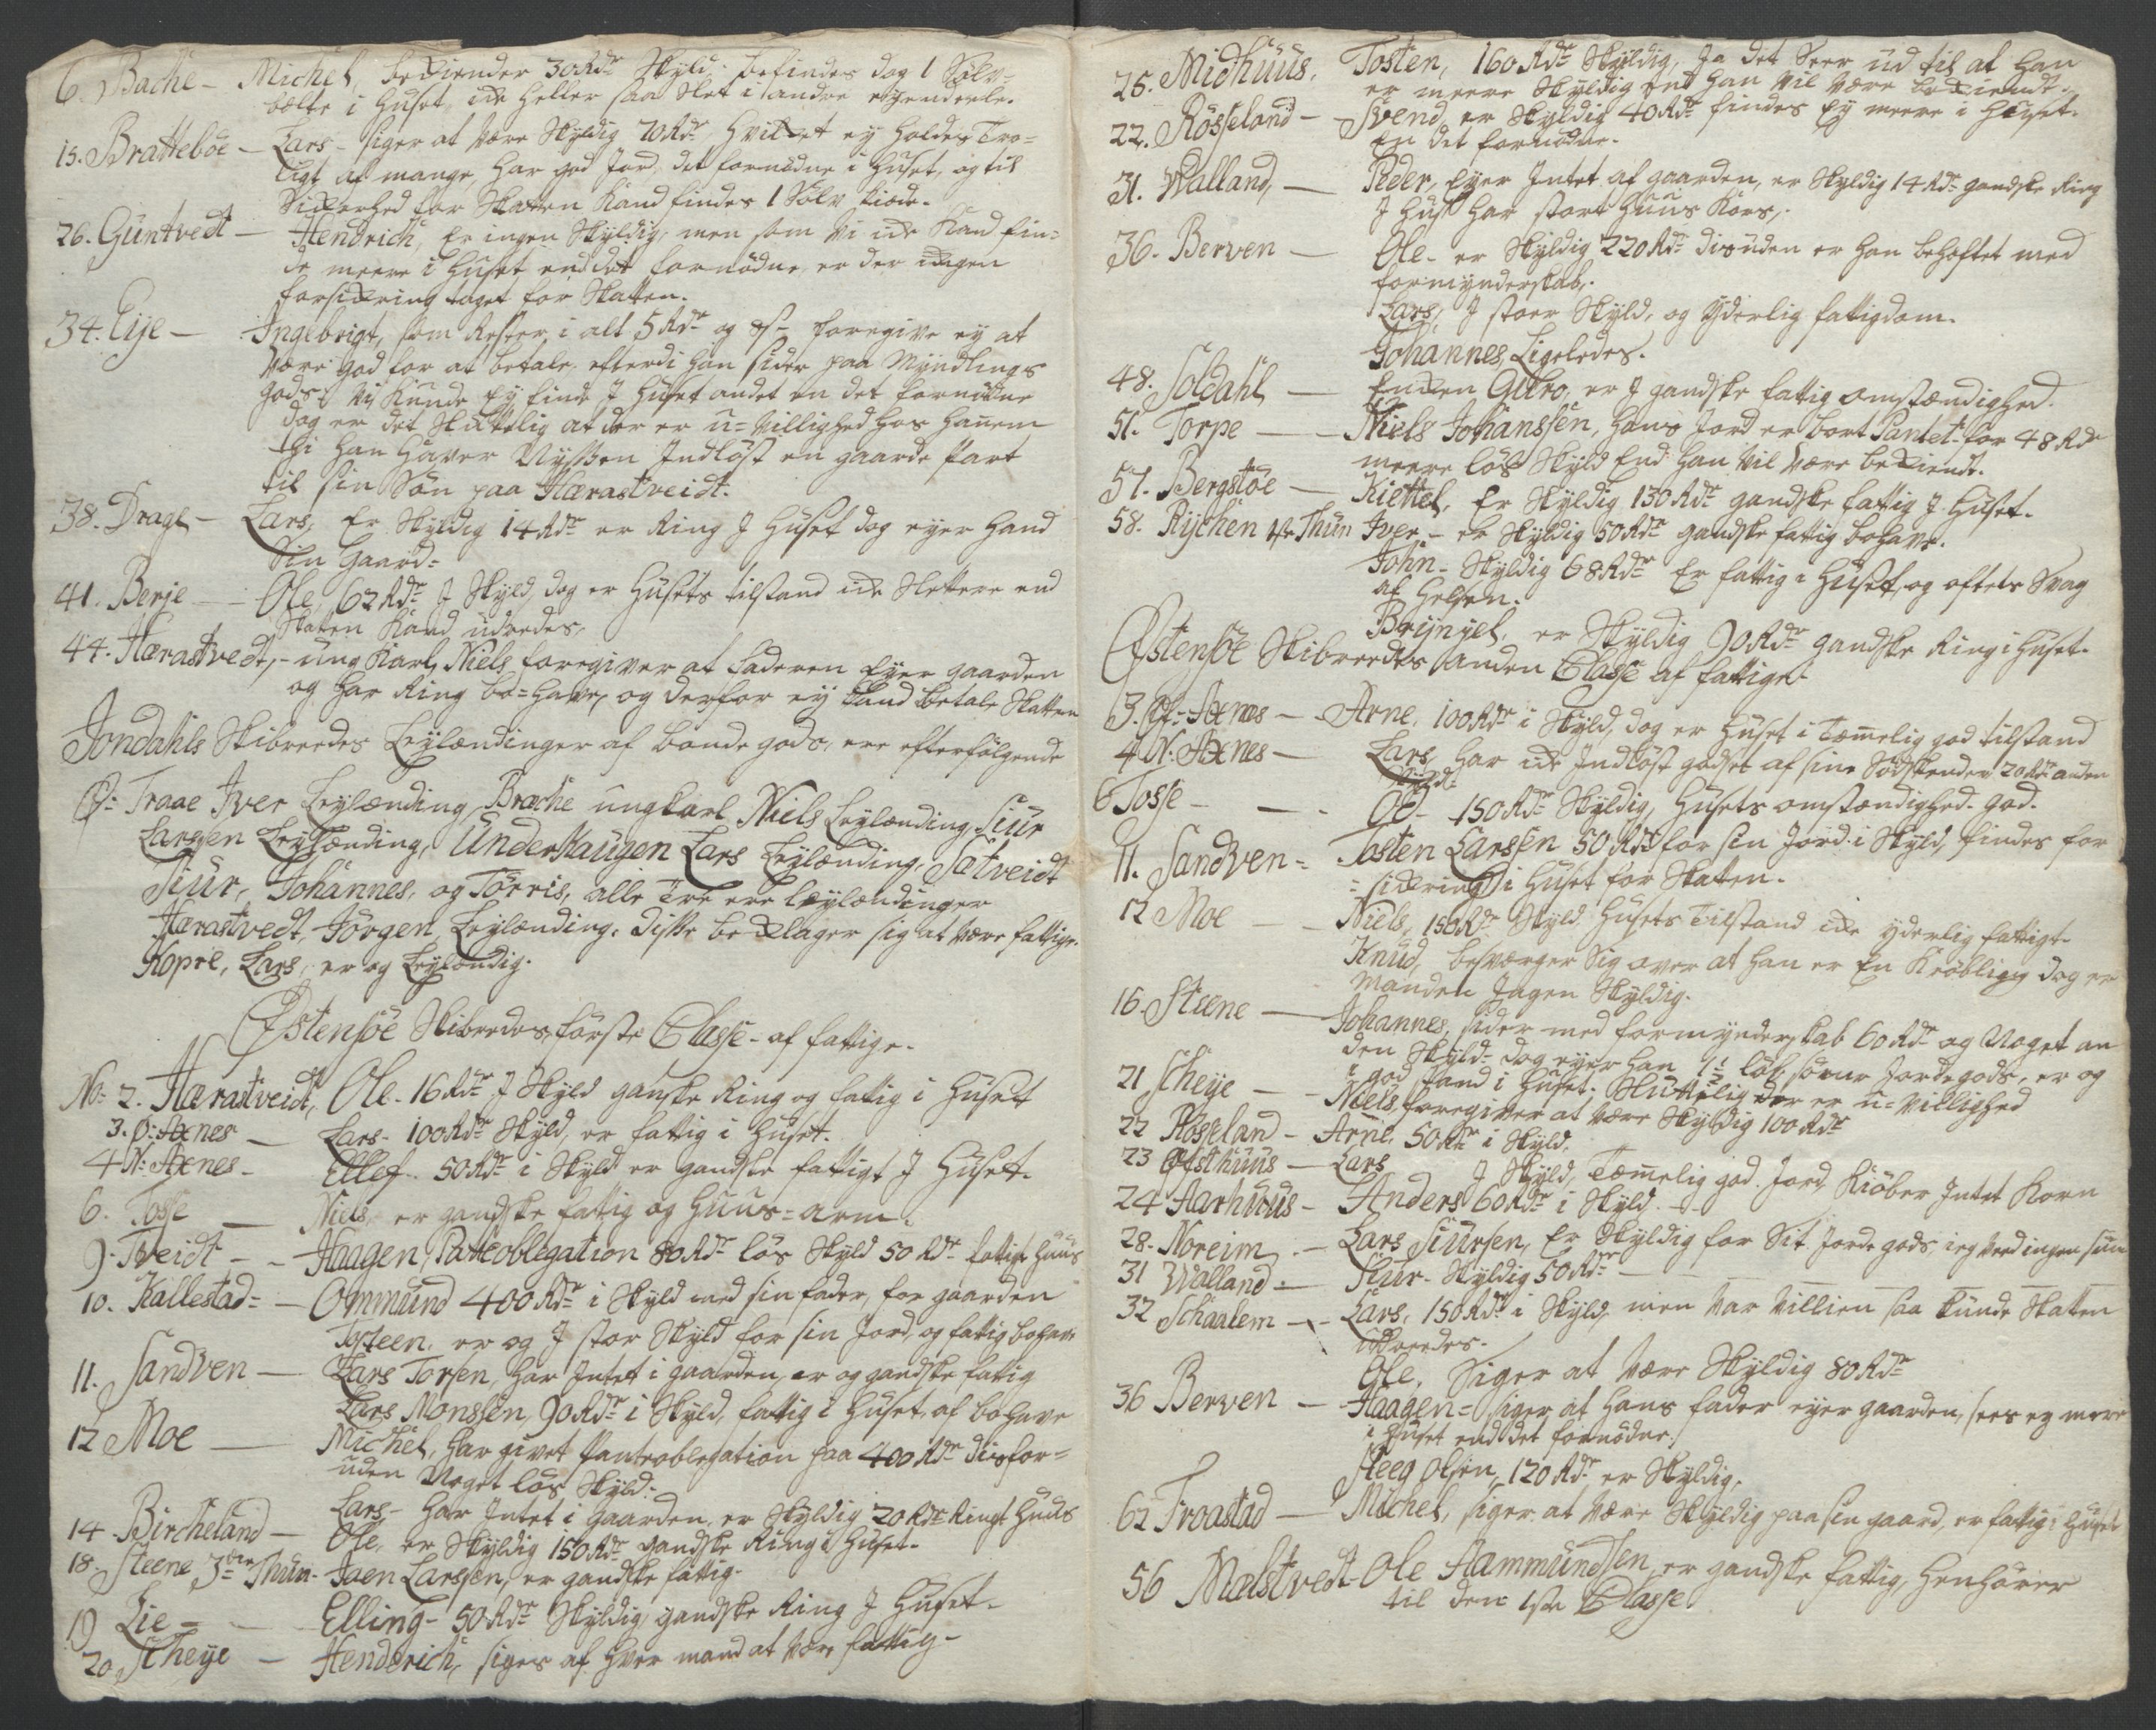 6. Bache - Michel, bekiender 30 Rdr Skyld, befindes dog 1 Sölv=
bælte i Huset, icke heller saa slet i andre eyendeele.
15. Bratteböe - Lars - siger at være skyldig 70 Rdr hvilket ey holdes Tro=
ligt af mange, har god Jord, det fornödne i Huset, og til
Sickerhed for Skatten kand findes 1 Sölv kiede.
26. Guntvedt - Hendrich, er ingen skyldig, men som vi icke kand fin=
de meere i Huset end det fornödne, er der ingen
forsickring taget for Skatten.
34. Eije - Ingebrigt, som Rester, i alt 5 Rdr og foregive ey at
være god for at betale, efterdi han sider paa Myndlings
gods. Vi kunde ey finde J Huset andet en det fornödne
dog er det skutelig at der er u=villighed hos hanem
thi han haver Nyssen Indlöst en gaarde part
til sin Sön paa Hærastveidt.
38. Drage - Lars, Er skyldig 14 Rdr er Ring J Huset dog eyer hand
Sin Gaard=
41. Berje - Ole, 62 Rdr J Skyld, dog er Husets tilstand icke slettere end
Skatten kand udredes,
44. Hærastvedt, - ung Karl, Niels foregiver at Faderen Eyer gaarden
og har Ring bo=have, og derfor ey kand betale Skatten
Jondahls Skibreedes Leylændinger af bonde gods, ere efterfölgende
Ø: Traae Iver Leylænding, Bræche ungkarl Niels Leylænding, Siur
Larssen Leylænding, Underhaugen Lars Leylænding, Sætveidt
Siur, Johannes, og Törris, alle Tre ere leylændinger
Hærastvedt, Jörgen, Leylænding. Disse beklager sig at være fattige.
Kopre, Lars, er og Leylændig.
Østensöe Skibredes förste Classe af fattige.
No: 2. Hærastveidt, Ole - 16 Rdr J Skyld ganske Ring og fatig i Huset
3. Ø: Axnes - Lars - 100 Rdr Skyld, er fattig i Huset.
4 N: Axnes - Ellef - 50 Rdr i Skyld er gandske fattigt J Huset.
6. Tosse - Niels, er gandske fattig og Huus=arm.
9. Tveidt - - Haagen, Panteoblegation 80 Rdr lös Skyld 50 Rdr fatigt Huus
10. Kallestad= - Ommund 400 Rdr i Skyld med sin fader, for gaarden
Tosteen, er og J stor Skyld for sin Jord, og fattig bohave
11. Sandven - Lars Torsen, har Intet i gaarden, er og gandske fatig
Lars Monssen, 90 Rdr i Skyld, fattig i Huset, af bohave
12 Moe - Michel, har givet Panteoblegation paa 400 Rdr disfor=
uden Noget lös Skyld:
Lars - har Intet i Gaarden, er skyldig 20 Rdr Ringt Huus
14. Bircheland - Ole, er skyldig 150 Rdr gandske Ring i Huset.
18. Steene 3de Thun - Joen Larssen, er gandske fattig.
19 Lie - Elling - 50 Rdr skyldig, gandske Ring J Huset.
20 Scheye - Henderich, siges af hver mand at være fattig -
25. Midhuus, Tosten, 160 Rdr skyldig, Ja det Seer ud til at han
er meere skyldig end han vil være bekiendt.
22. Rösseland - Svend, er skyldig 40 Rdr findes ey meere i Huset.
en det fornödne.
31. Walland, - Peder, Eyer Intet af gaarden, er skyldig 14 Rdr gandske Ring
J Huset har stort Huus Kors,
36. Berven - Ole - er skyldig 220 Rdr disuden er han behæftet med
formynderskab,
Lars, J stoer Skyld, og yderlig fattigdom.
Johannes Ligeledes.
48. Soldahl - Encken Guro, er J gandske fattig omstændighed.
51. Torpe - - Niels Johanssen, hans Jord er bort Pantet for 48 Rdr
meere lös Skyld End han vil være bekiendt.
57. Bergstöe - Kiettel, Er skyldig 130 Rdr gandske fattig J Huset.
58. Rychen Thun Iver - er skyldig 50 Rdr gandske fattig bohave.
John - skyldig 68 Rdr Er fattig i Huset, og oftest Svag
af helsen.
Brynyel, er skyldig 90 Rdr gandske Ring i Huset.
Østensöe Skibreedes anden Classe af fattige.
3. Ø: Axnes - Arne, 100 Rdr i Skyld, dog er Huset i Tæmelig god tilstand
4 N: Axnes - Lars, har icke Indlöst godset af sine Södskender 20 Rdr anden
Skyld.
6 Tosse - - Od - 150 Rdr skyldig, Husets omstændighed god.
11. Sandven - Tosten Larssen 50 Rdr for sin Jord i Skyld, findes for
=sickring i Huset for Skatten.
12 Moe - - Niels, 150 Rdr Skyld Husets Tilstand icke yderlig fattigt.
Knud, besværger Sig over at han er En Kröbling dog er
Manden Ingen skyldig.
16. Steene - Johannes, sider med formynderskab 60 Rdr og Noget an
den Skyld - dog eyer han 1½ löb Jordegods, er og
i god stand i Huset; skuttelig der er u=villighed
21 Scheye - Niels, foregiver at være skyldig 100 Rdr
22 Rösseland - Arne, 50 Rdr i Skyld,
23 Øfsthuus - Lars J Skyld, Tæmelig god Jord, kiöber Intet Korn
24 Aarhuus - Anders 60 Rdr i Skyld.
28. Noreim - Lars Siursen, Er skyldig for Sit Jorde gods, ieg veed ingen
31 Walland - Siur - skyldig 50 Rdr
32 Schaalem - - Lars, 150 Rdr i Skyld, men var villien saa kunde Skatten
udreedes.
Ole, Siger at være skyldig 80 Rdr
36 Berven - Haagen= siger at hans fader eyer gaarden, sees ey mere
i Huset end det fornödne.
Steeg Olsen, 120 Rdr er skyldig,
62 Froastad - Michel, siger at være skyldig paa sin gaard, er fattig i Huset
56 Mælstvedt - Ole Aammundsen, er gandske fattig, henhörer
til den 1ste Classe